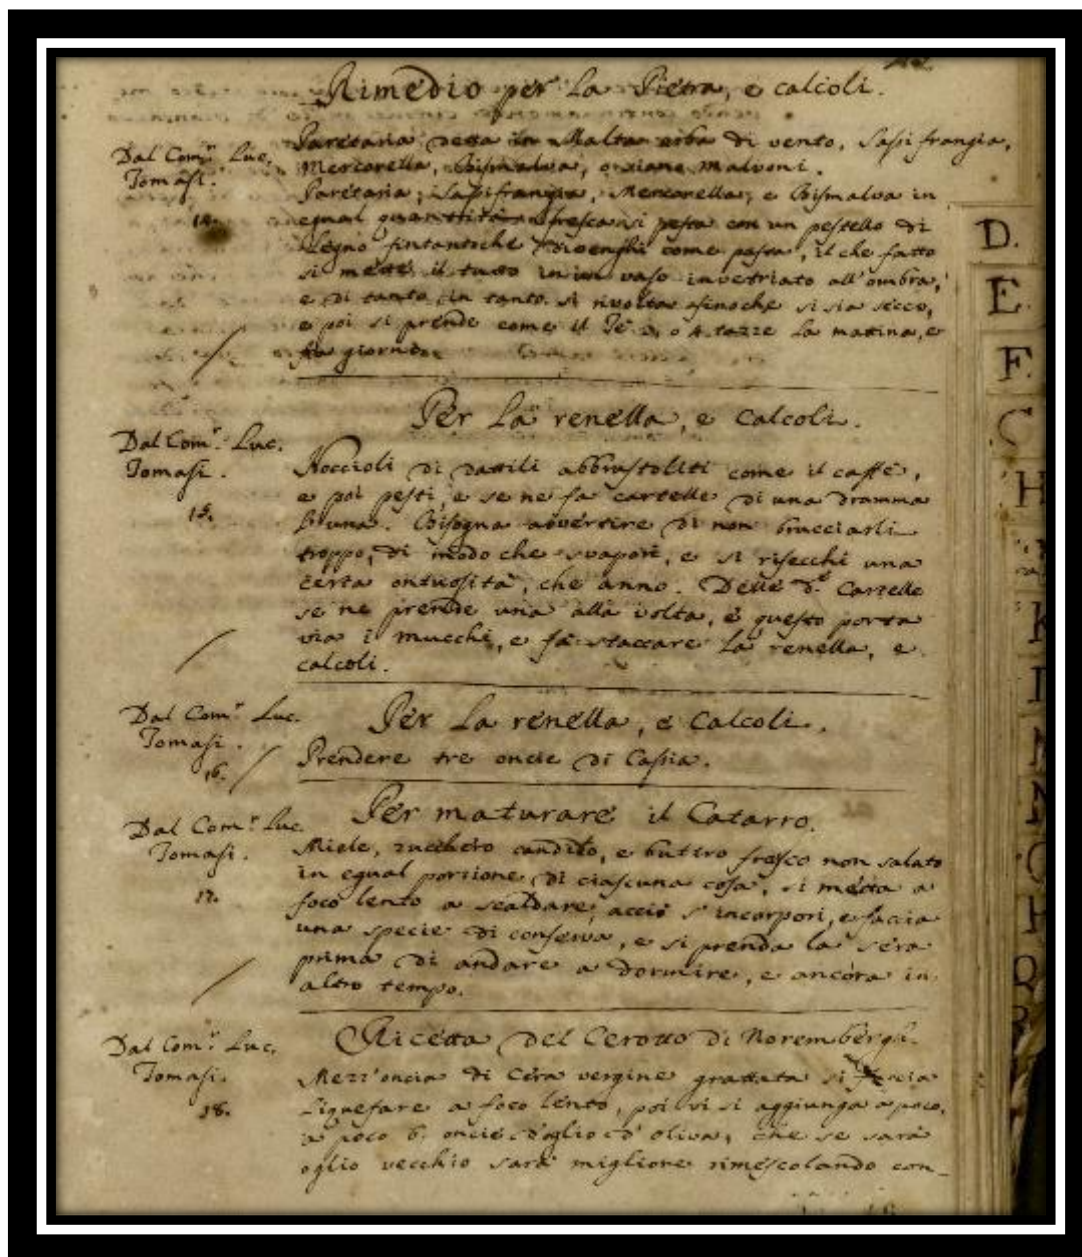 Rimedio per la Pietra, e calcoli.
Dal Com.r Luc.
Tomasi.
14.
Paretaria detta in Malta erba di vento, Sassifrangia,
Mercorella, Bismalva, o siano Malvoni.
Paretaria, Sassifrangia, Mercorella, e Bismalva in
egual quantità fresca si pesta con un pestello di
Legno fintantoche divenghi come pasta, il che fatto
si mette il tutto in un vaso invetriato all'ombra,
e di tanto in tanto si rivolta afinoche si sia secco,
e poi si prende come il Te 3, o 4 tazze la mattina, e
fra giorno.
Per la renella, e Calcoli.
Dal Com.r Luc.
Tomasi.
15.
Noccioli di dattili abbrustoliti come il caffè,
e poi pesti, e se ne fa cartelle di una dramma
l'una. Bisogna avvertire di non brucciarli
troppo, di modo che svapori, e si risecchi una
certa ontuosità, che anno. Delle d.e Cartelle
se ne prende una alla volta, e questo porta
via i mucchi, e fà staccare la renella, e
calcoli.
Per la renella, e Calcoli.
Dal Com.r Luc.
Tomasi.
16.
Prendere tre oncie di Cassia.
Per maturare il Catarro.
Dal Com.r Luc.
Tomasi.
17.
Miele, zucchero candito, e butiro fresco non salato
in egual porzione di ciascuna cosa, si metta a
foco lento a scaldare, acciò s'incorpori, e faccia
una specie di conserva, e si prenda la sera
prima di andare a dormire, e ancora in
altro tempo.
Ricetta del Cerotto di Norembergh.
Dal Com.r Luc.
Tomasi.
18.
Mezz'oncia di Cera vergine grattata si faccia
liquefare a foco lento, poi vi si aggiunga a poco,
a poco 6. oncie d'oglio d'oliva, che se sarà
oglio vecchio sarà migliore rimescolando con-
D.
E.
F.
H